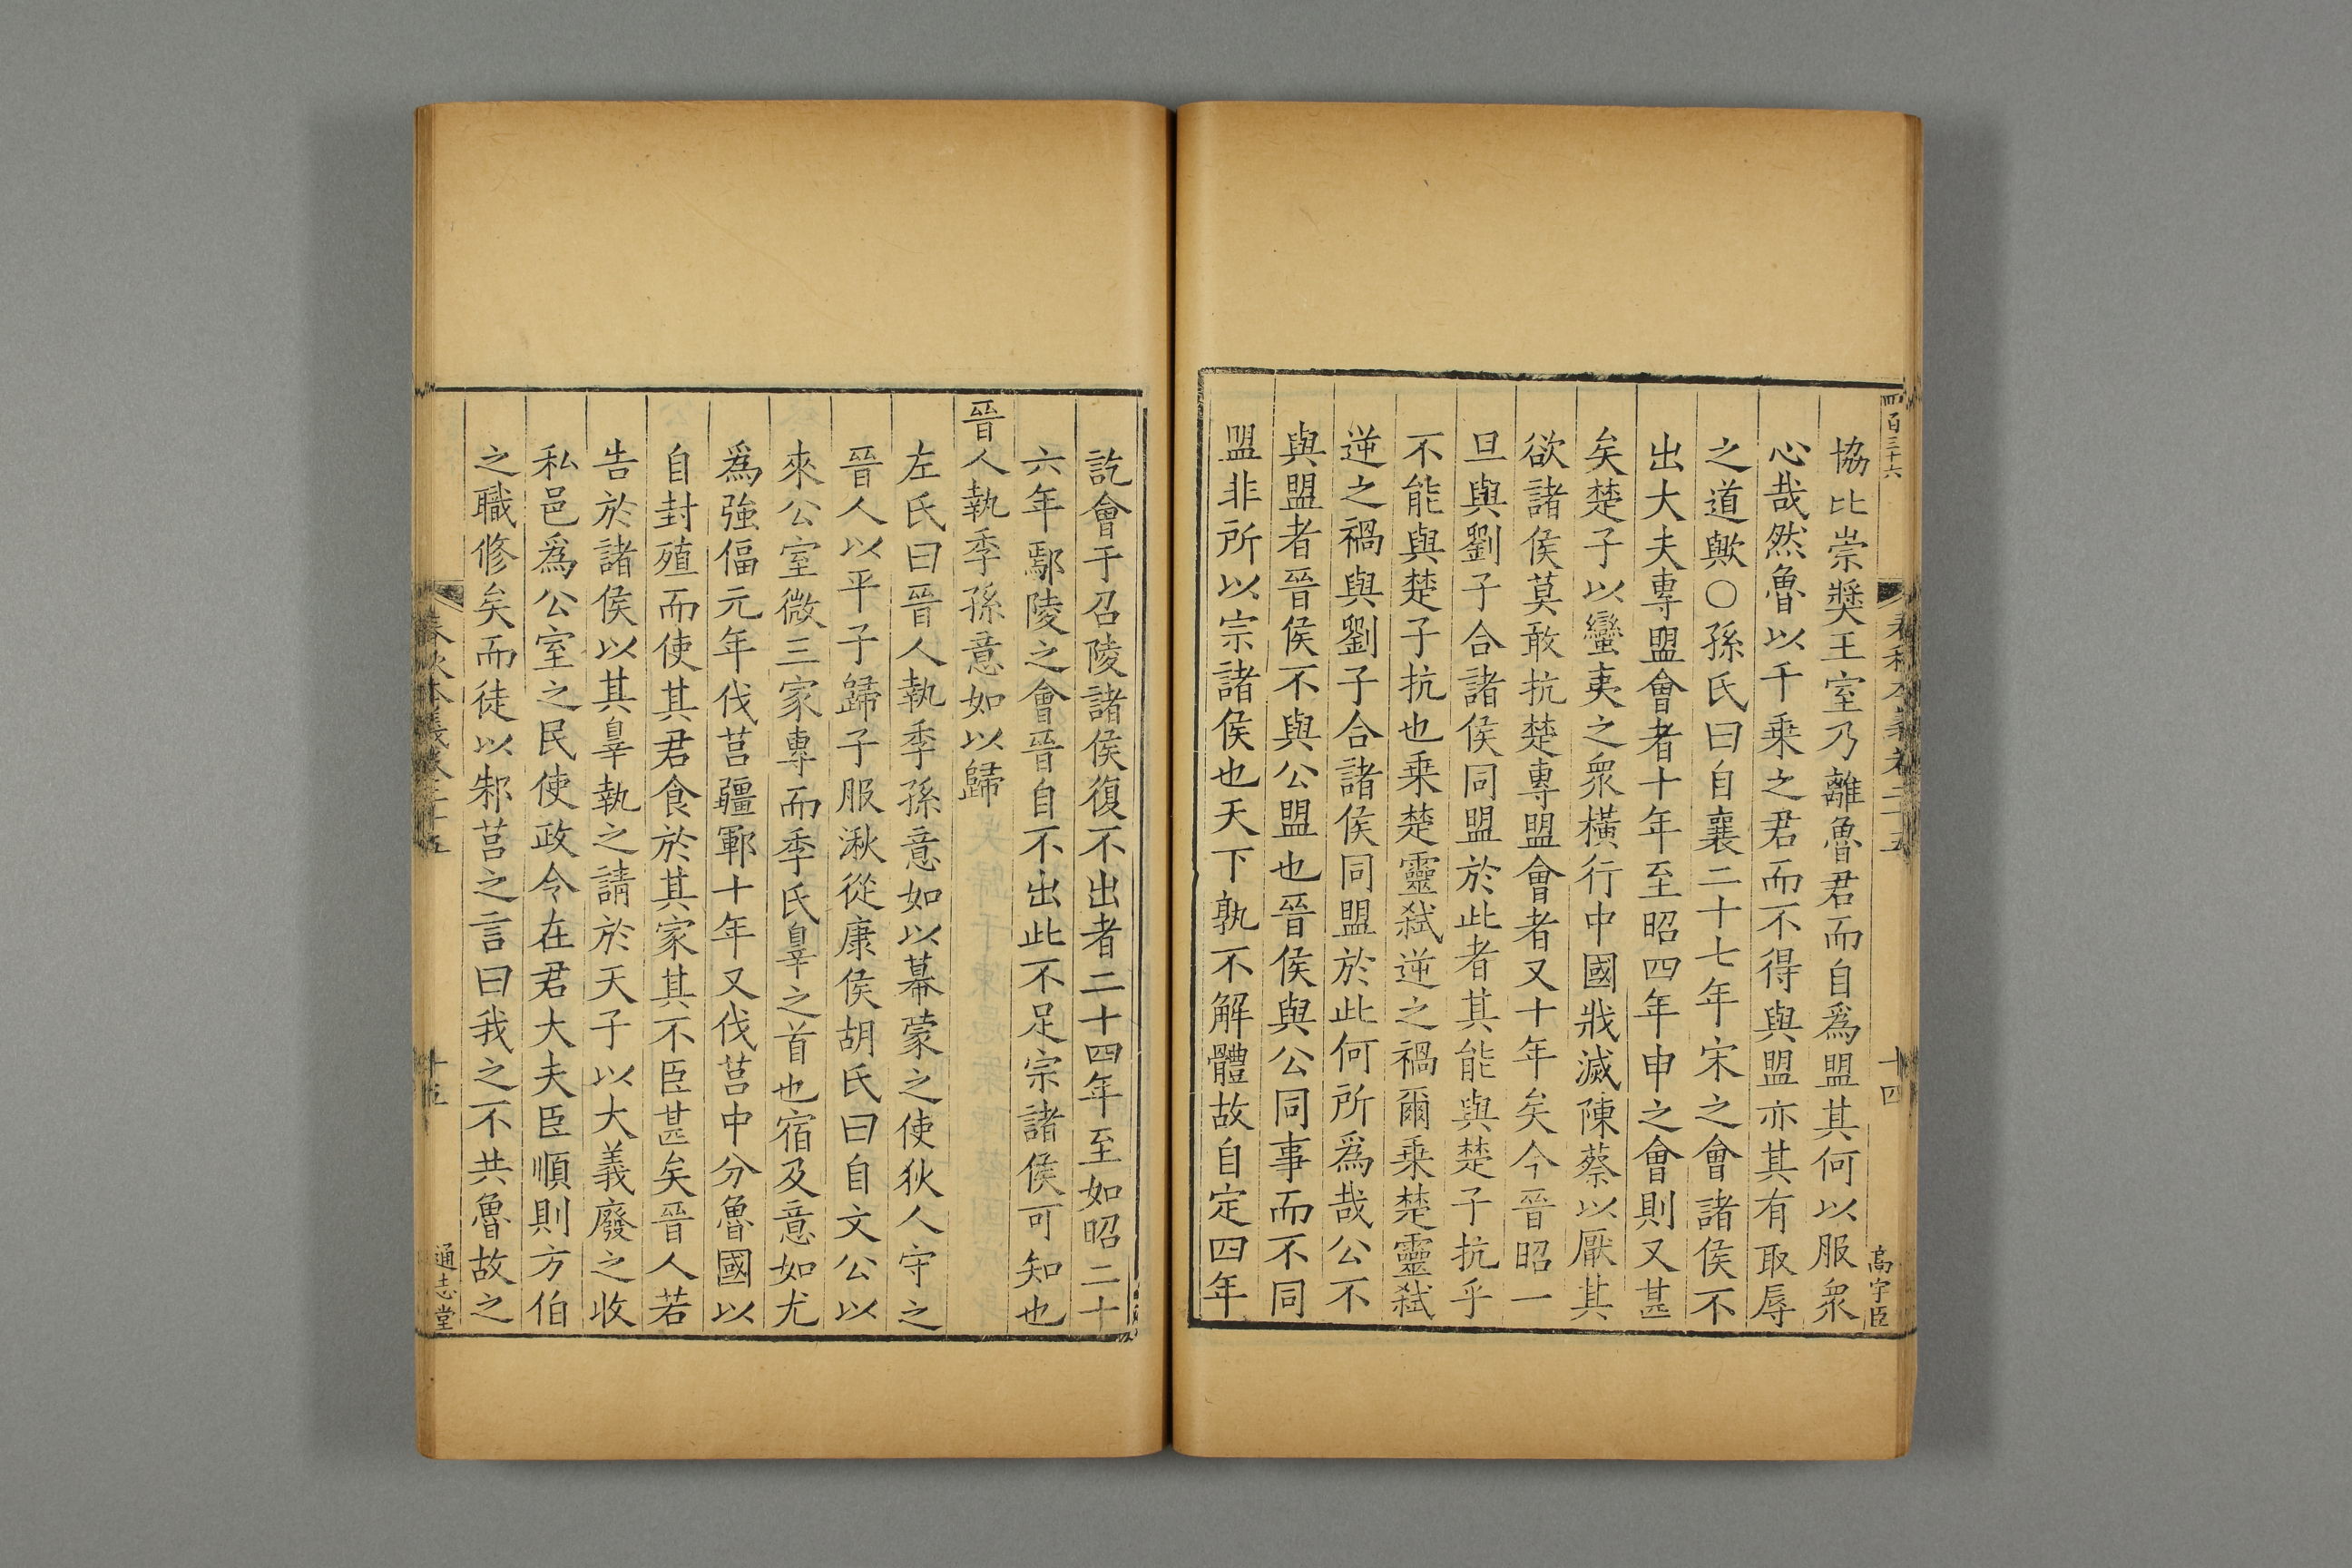 四百三十六
十四
高宇臣
協比崇獎王室乃離魯君而自爲盟其何以服衆
心哉然魯以千乗之君而不得與盟亦其有取辱
之道歟○孫氏曰自襄二十七年宋之會諸侯不
出大夫專盟會者十年至昭四年申之會則又甚
矣楚子以蠻夷之衆橫行中國戕滅陳蔡以厭其
欲諸侯莫敢抗楚專盟會者又十年矣今晉昭一
旦與劉子合諸侯同盟於此者其能與楚子抗乎
不能與楚子抗也乗楚靈弑逆之禍爾乗楚靈弑
逆之禍與劉子合諸侯同盟於此何所爲哉公不
與盟者晉侯不與公盟也晉侯與公同事而不同
盟非所以宗諸侯也天下孰不解體故自定四年
訖會于召陵諸侯復不出者二十四年至如昭二十
六年鄢陵之會晉自不出此不足宗諸侯可知也
晉人執季孫意如以歸
左氏曰晉人執季孫意如以幕蒙之使狄人守之
晉人以平子歸子服湫從康侯胡氏曰自文公以
來公室微三家專而季氏辠之首也宿及意如尤
爲強偪元年伐莒疆鄆十年又伐莒中分魯國以
自封殖而使其君食於其家其不臣甚矣晉人若
告於諸侯以其辠執之請於天子以大義廢之收
私邑爲公室之民使政令在君大夫臣順則方伯
之職修矣而徒以邾莒之言曰我之不共魯故之
十五
通志堂